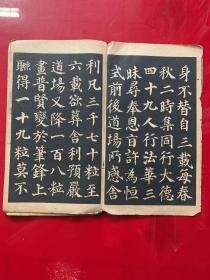 身不替自三載每春
秋二時集同行大德
四十九人行法華三
昧尋奉恩旨許為恒
式前後道場所感舍
利凡三千七十粒至
六載欲葬舍利預嚴
道場又降一百八粒
畫普賢變於筆鋒上
聯得一十九粒莫不